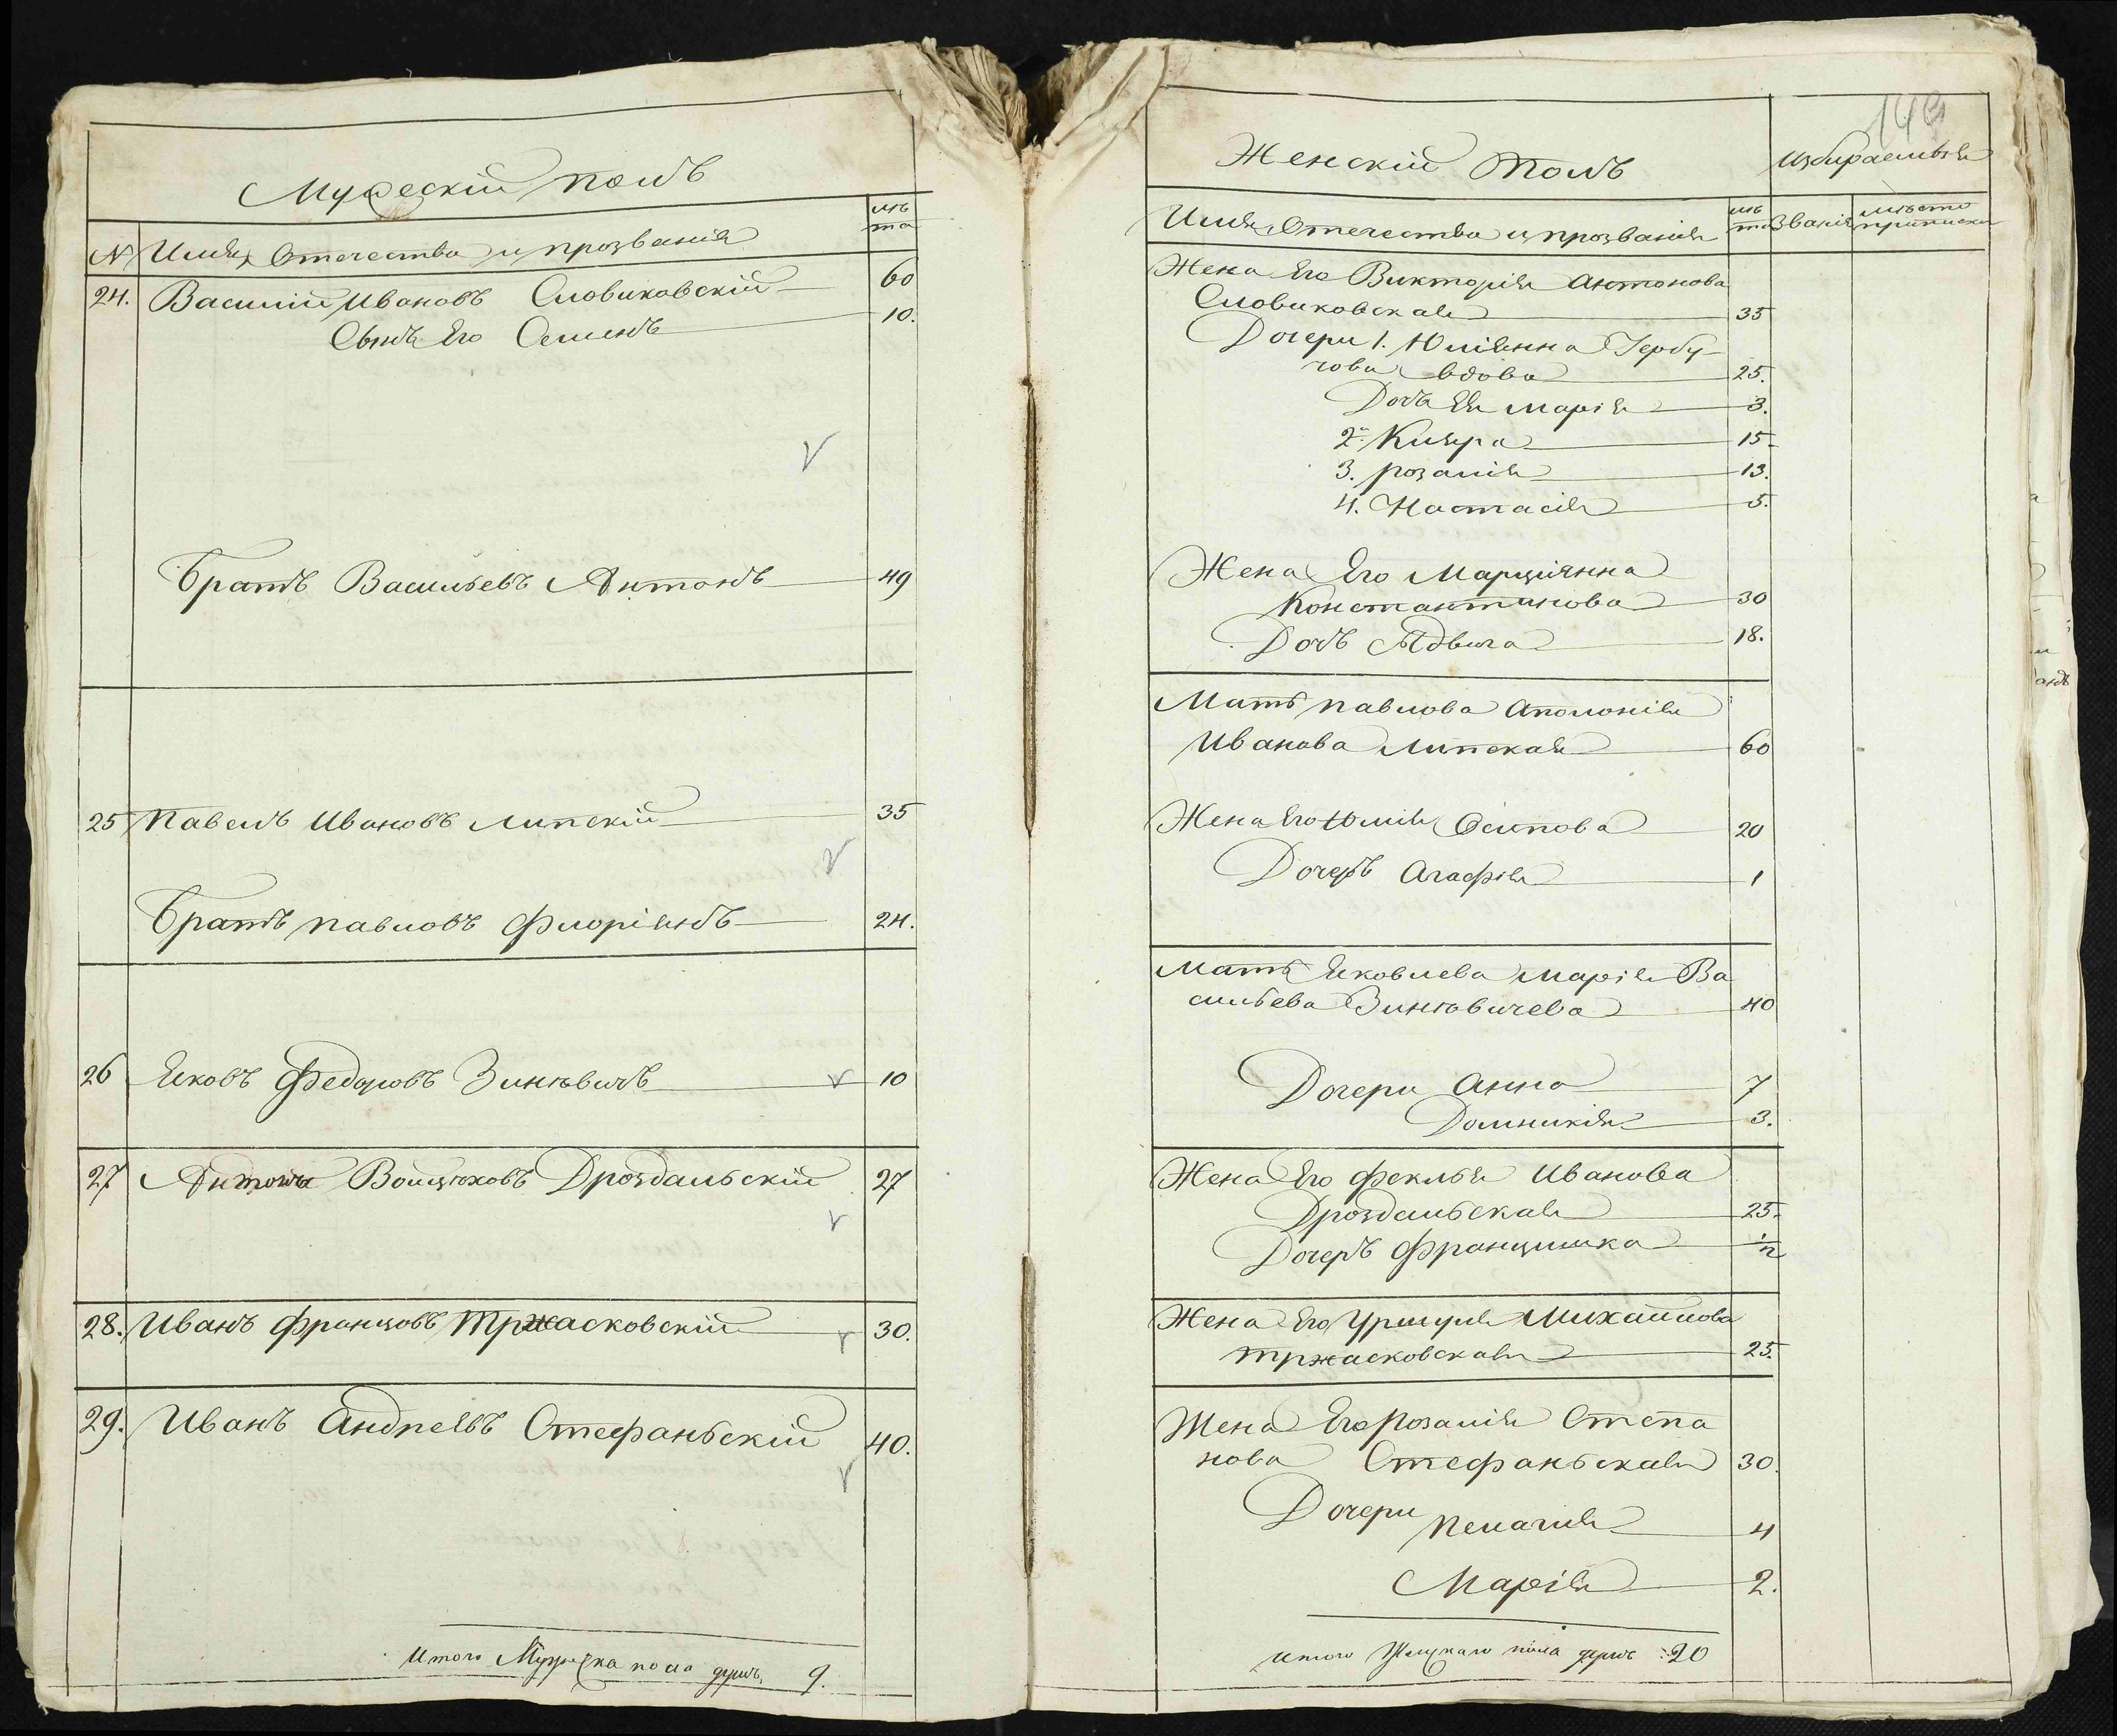 Мужескій полъ
№ Имя Отечество и прозванія лѣта
24. Василій Ивановъ Словиковскій 60
Сынъ Его Семенъ 10.
Братъ Васильевъ Антонъ 49
25 Павелъ Ивановъ Липскій 35
Братъ павловъ Флоріянъ 24.
26 Яковъ Федоровъ Зинковичъ 10
27 Антонъ Войцеховъ Дроздальскій 27
28. Иванъ Францовъ Тржасковскій 30.
29. Иванъ Андреевъ Стефаньскій 40.
Итого душъ 9.
149
Женскій Полъ Избираемыя
Имя, Отечество и прозванія лѣта Званія мѣсто приписки
Жена Его Викторія Антонова
Словиковская 35
Дочери 1. Юліянна Гербу-
това вдова 25.
Дочь Ея Марія 3.
2я Кляра 15.
3. розалія 13.
4. Настасія 5.
Жена Его Марціянна
Константинова 30
Дочь Ядвига 18.
Мать павлова Аполонія
Иванова Липская 60
Жена Его Юлія Осипова 20
Дочерь Агафія 1
Мать Яковлева Марія Ва
сильева Зинковичева 40
Дочери Анна 7
Домникія 3.
Жена Его Феклья Иванова
Дроздальская 25.
Дочерь Францишка ½
Жена Его Уршуля Михайлова
Тржасковская 25.
Жена Его Розалія Степа
нова Стефаньская 30.
Дочери Пелагія 4
Марія 2.
Итого пола душъ 20